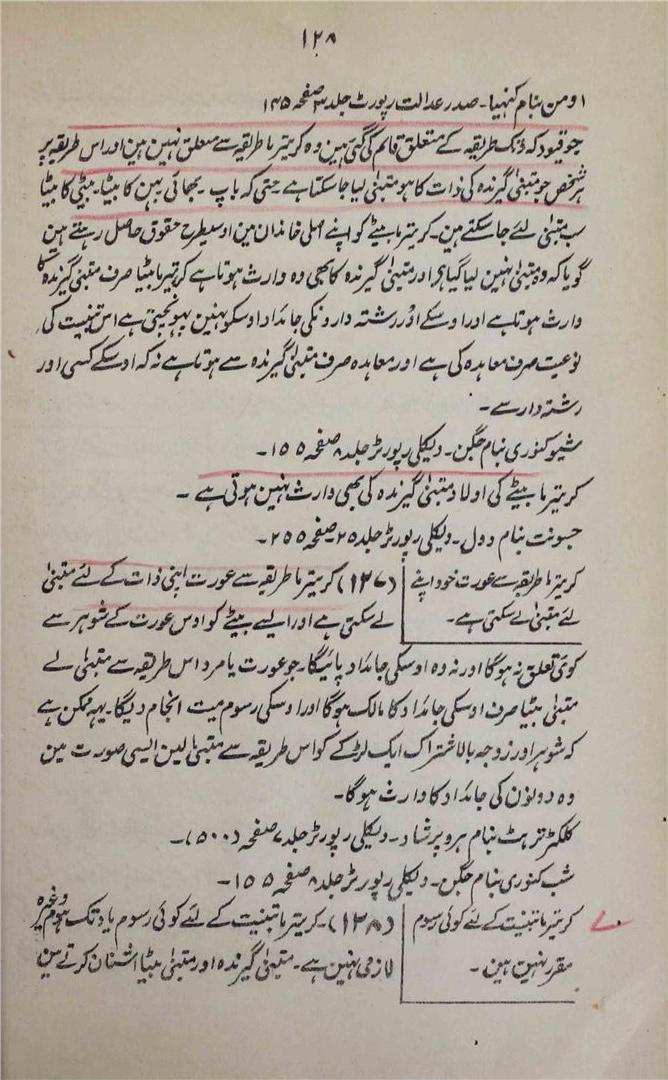 ۱۲۸
اومن بنام کنہیا۔ صدر عدالت رپورٹ جلد ۳ صفحہ ۱۴۵
جو قیود کہ دتک طریقہ کے متعلق قائم کی گئی ہین وہ کریتر ما طریقہ سے متعلق نہین ہین اور اس طریقہ پر
ہر شخص جو متبنیٰ گیرندہ کی ذات کا ہو متبنیٰ لیا جاسکتا ہے حتی کہ باپ۔ بھائی بہن کا بیٹا۔ بیٹی کا بیٹا
سب متبنیٰ لئے جاسکتے ہین۔ کریتر ما بیٹے کو اپنے اصلی خاندان مین اوسیطرح حقوق حاصل رہتے ہین
گویا کہ وہ متبنیٰ نہین لیا گیا ہو اور متبنیٰ گیرندہ کا بھی وہ وارث ہوتا ہے کریتر ما بیٹا صرف متبنیٰ گیرندہ کا
وارث ہوتا ہے اور اوسکے اور رشتہ دارونکی جائداد اوسکو نہین پہونچتی ہے اس تبنیت کی
نوعیت صرف معاہدہ کی ہے اور معاہدہ صرف متبنیٰ گیرندہ سے ہوتا ہے نہ کہ اوسکے کسی اور
رشتہ دار سے۔
شیو کنوری بنام جگن۔ ویکلی رپورٹر جلد ۸ صفحہ ۱۵۵۔
کریتر ما بیٹے کی اولاد متبنیٰ گیرندہ کی بھی وارث نہین ہوتی ہے۔
جسونت بنام دول۔ ویکلی رپورٹر جلد ۲۵ صفحہ ۲۵۵۔
کریتر ما طریقہ سے عورت خود اپنے
لئے متبنیٰ لے سکتی ہے۔
(۱۲۷) کریتر ما طریقہ سے عورت اپنی ذات کے لئے متبنیٰ
لے سکتی ہے اور ایسے بیٹے کو اوس عورت کے شوہر سے
کوئی تعلق نہ ہوگا اور نہ وہ اوسکی جائداد پائیگا۔ جو عورت یا مرد اس طریقہ سے متبنیٰ لے
متبنیٰ بیٹا صرف اوسکی جائداد کا مالک ہوگا اور اوسکی رسوم میت انجام دیگا۔ یہہ ممکن ہے
کہ شوہر اور زوجہ بالاشتراک ایک لڑکے کو اس طریقہ سے متبنیٰ لین ایسی صورت مین
وہ دونون کی جائداد کا وارث ہوگا۔
کلکٹر ترہٹ بنام ہرو پرشاد۔ ویکلی رپورٹر جلد ۷ صفحہ (۵۰۰)۔
شب کنوری بنام جگن۔ ویکلی رپورٹر جلد ۸ صفحہ ۱۵۵۔
کریتر ما تبنیت کے لئے کوئی رسوم
مقرر نہین ہین۔
(۱۲۸)۔ کریتر ما تبنیت کے لئے کوئی رسوم یا دتک ہوم وغیرہ
لازمی نہین ہے۔ متبنیٰ گیرندہ اور متبنیٰ بیٹا اشنان کرتے ہین